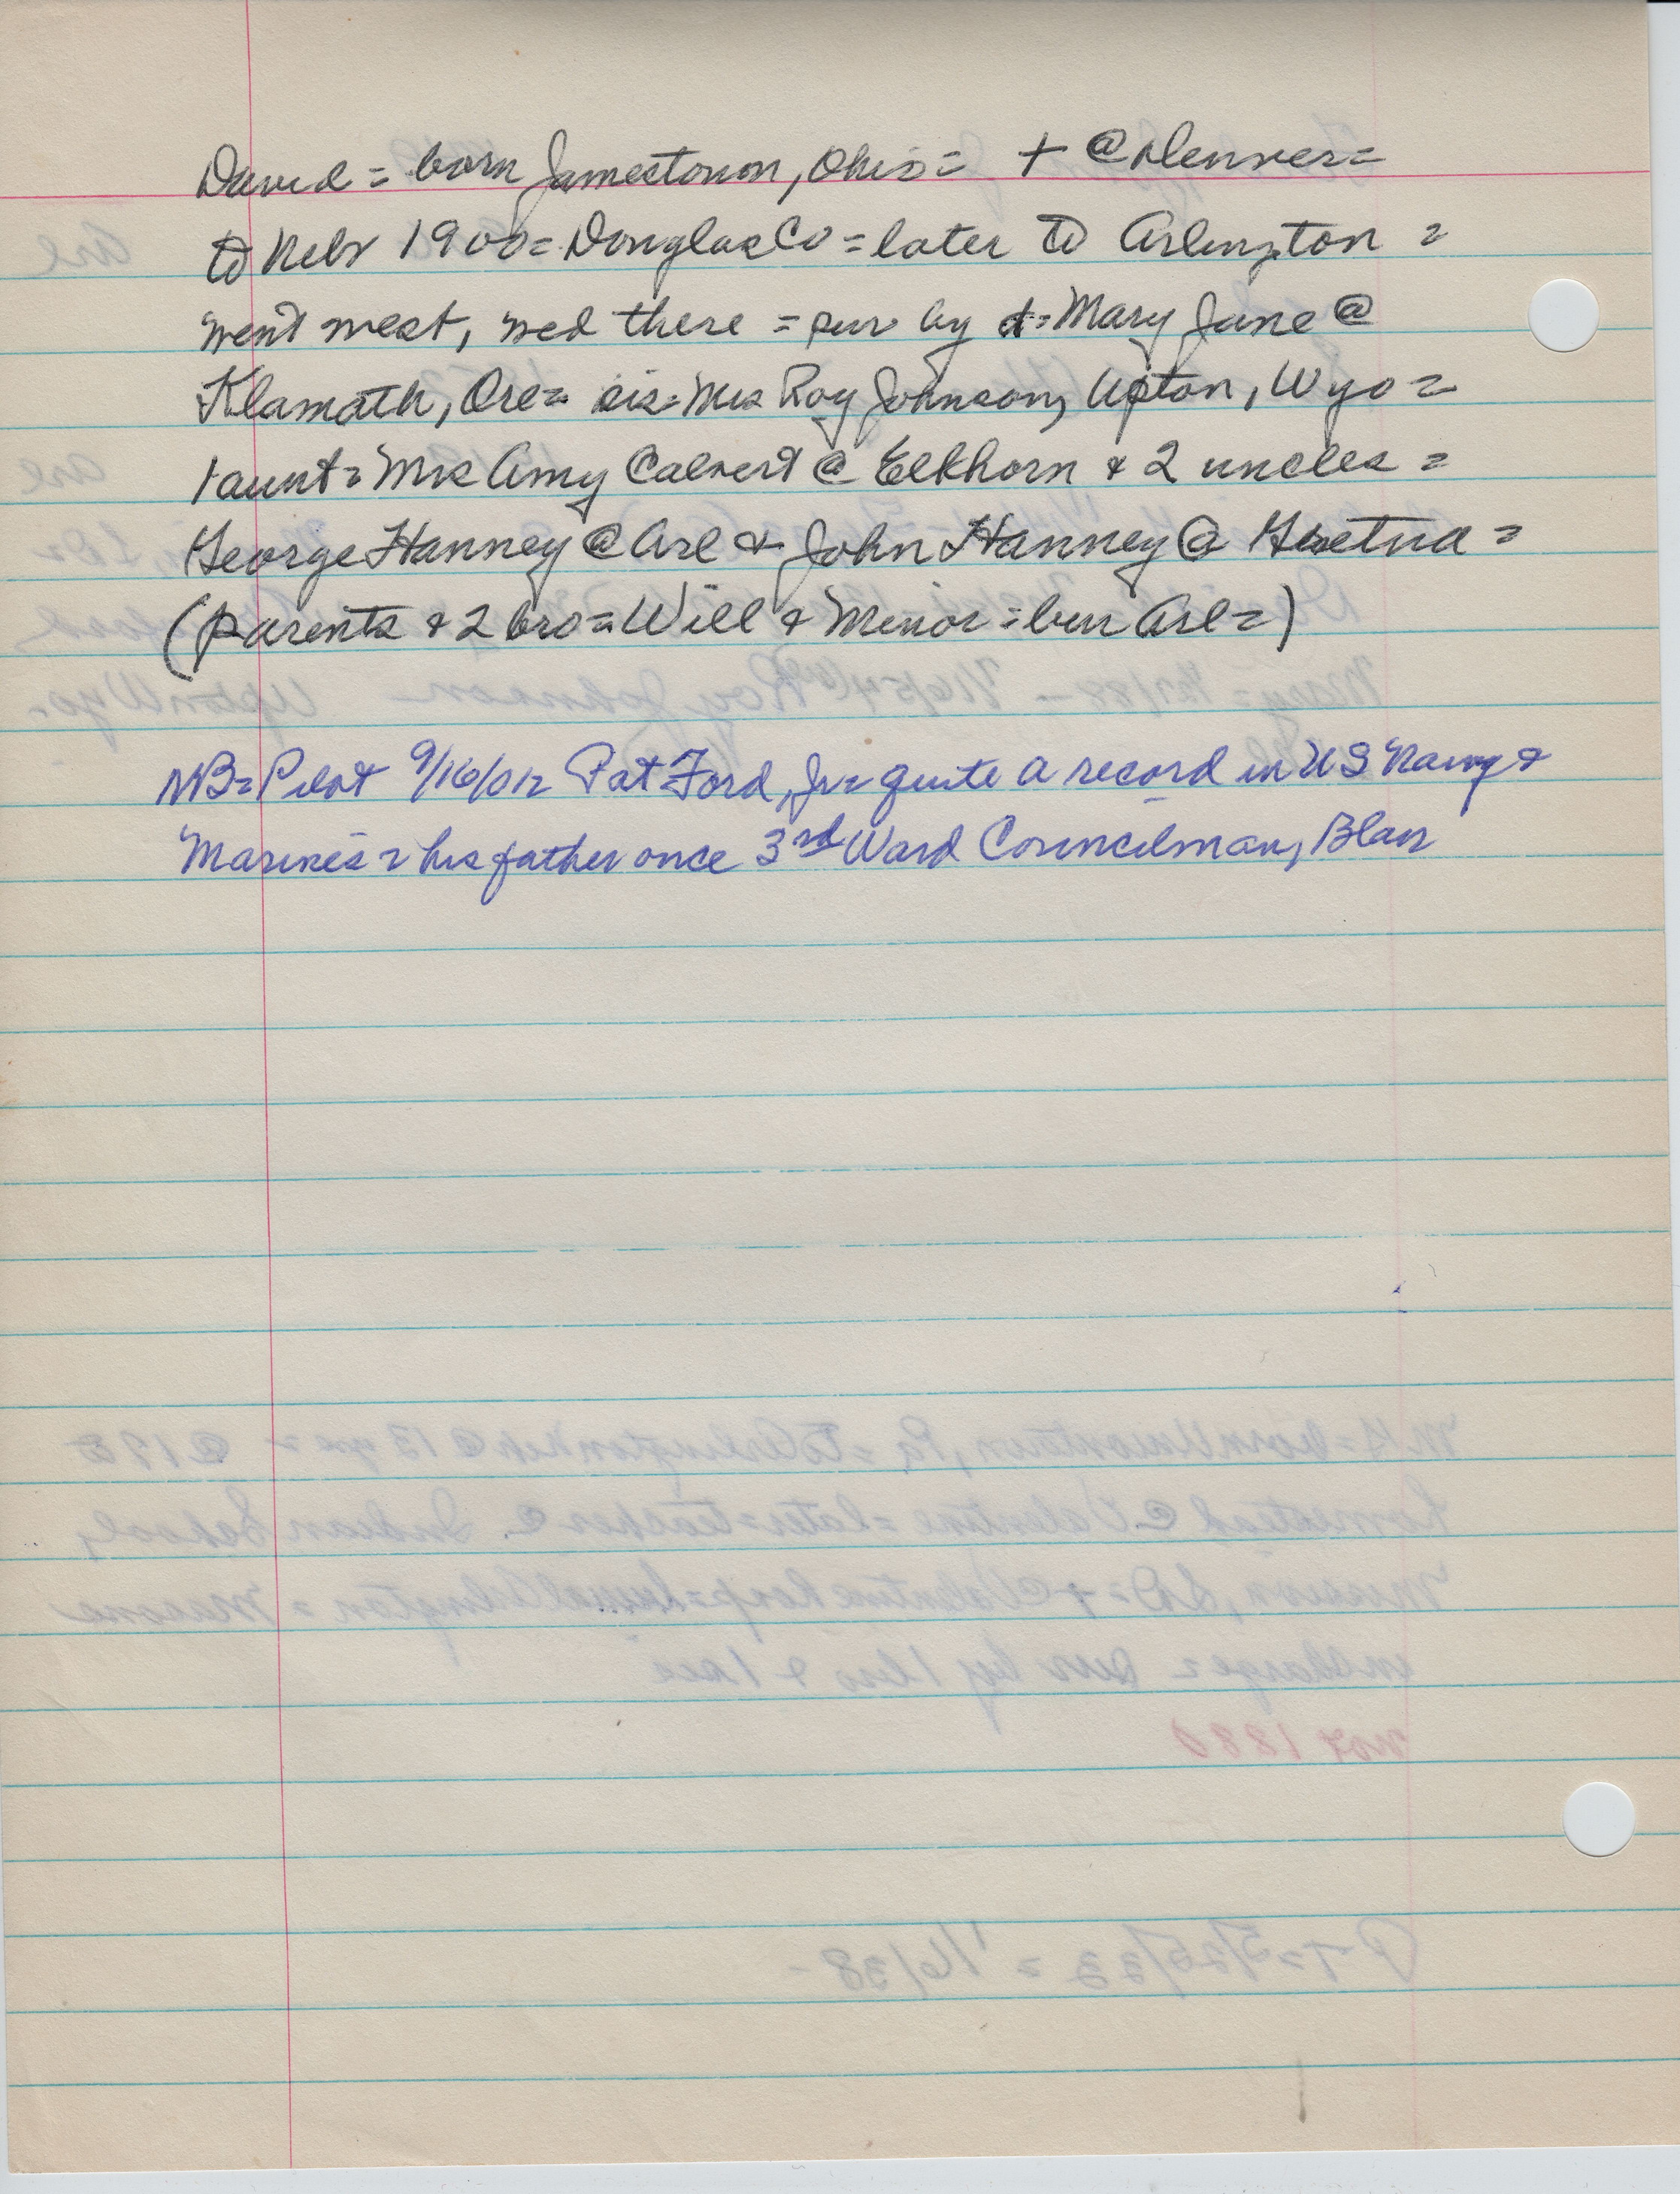 David = born Jamestown, Ohio = + @ Denver =
to Nebr 1900 = Douglas Co = later to Arlington =
went west, wed there = sur by d = Mary Jane @
Klamath, Ore = sis = Mrs Roy Johnson, Upton, Wyo =
1 aunt = Mrs Amy Calvert @ Elkhorn & 2 uncles =
George Hanney @ Arl & John Hanney @ Gretna =
(parents & 2 bro = Will & Minor = bur Arl =)
NB = Pilot 9/16/01 = Pat Ford, Jr = quite a record in US Navy &
Marines = his father once 3rd Ward Councilman, Blair